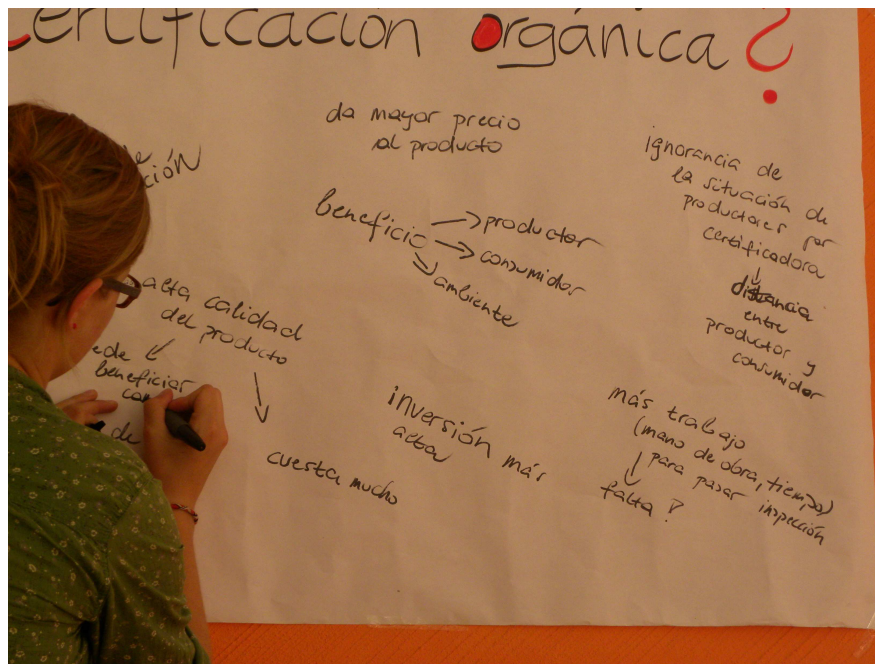 certificación orgánica?
da mayor precio
al producto
ción
beneficio → productor
→ consumidor
→ ambiente
ignorancia de
la situación de
productores por
certificadora
↓
distancia
entre
productor y
consumidor
alta calidad
del producto
beneficiar
de
cuesta mucho
inversión más
alta
más trabajo
(mano de obra, tiempo)
para pasar inspección
↓
falta?